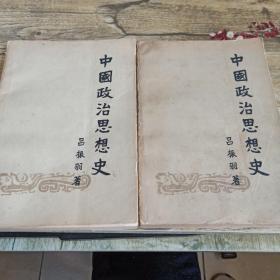 中國政治思想史
呂振羽著
中國政治思想史
呂振羽著